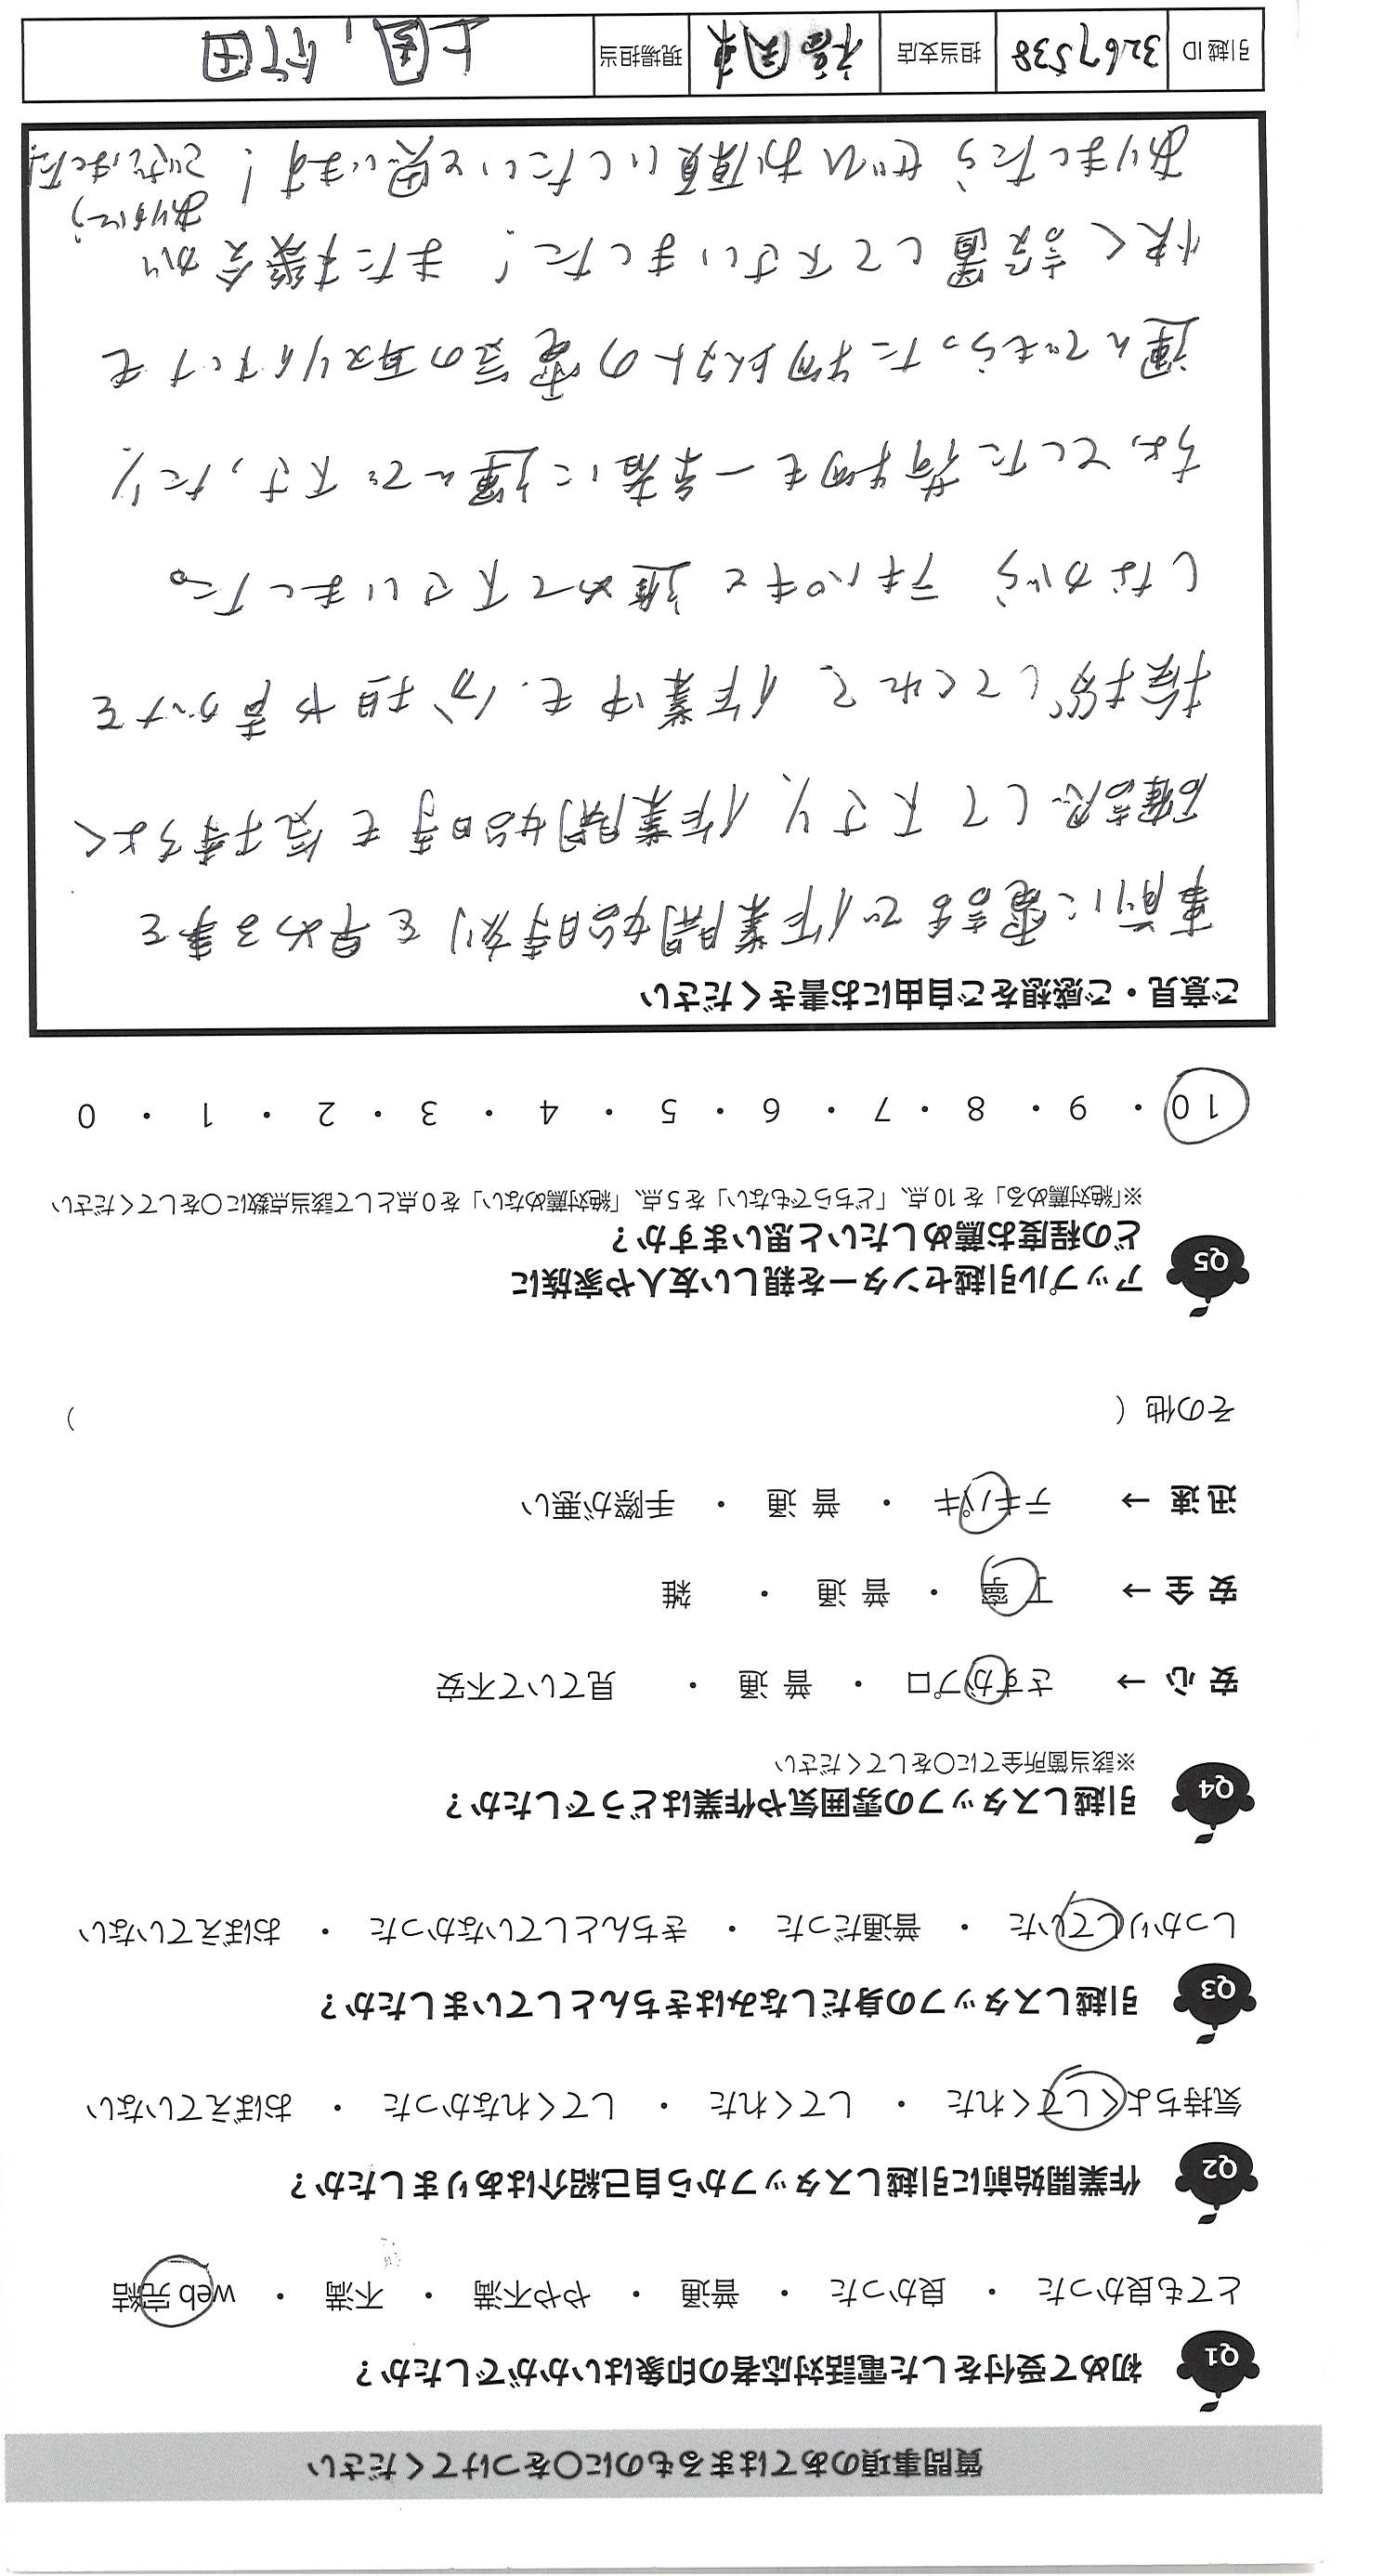 質問事項のあてはまるものに○をつけてください
Q1 初めて受付をした電話対応者の印象はいかがでしたか？
とても良かった ・ 良かった ・ 普通 ・ やや不満 ・ 不満 ・ web 完結
Q2 作業開始前に引越しスタッフから自己紹介はありましたか？
気持ちよくしてくれた ・ してくれた ・ してくれなかった ・ おぼえていない
Q3 引越しスタッフの身だしなみはきちんとしていましたか？
しっかりしていた ・ 普通だった ・ きちんとしていなかった ・ おぼえていない
Q4 引越しスタッフの雰囲気や作業はどうでしたか？
※該当箇所全てに○をしてください
安 心 → さすがプロ ・ 普 通 ・ 見ていて不安
安 全 → 丁 寧 ・ 普 通 ・ 雑
迅 速 → テキパキ ・ 普 通 ・ 手際が悪い
その他（ ）
Q5 アップル引越センターを親しい友人や家族に
どの程度お薦めしたいと思いますか？
※「絶対薦める」を 10 点、「どちらでもない」を 5 点、「絶対薦めない」を 0 点として該当点数に○をしてください
10 ・ 9 ・ 8 ・ 7 ・ 6 ・ 5 ・ 4 ・ 3 ・ 2 ・ 1 ・ 0
ご意見・ご感想をご自由にお書きください
事前に電話で作業開始時刻を早める事を
確認して下さり、作業開始時も気持ちよく
挨拶してくれて、作業中も、分担や声かけを
しながら テキパキと進めて下さいました。
ちょとした荷物も一緒に運んで下さったり、
運んでもらった物以外の電気の取り付けも
快く設置して下さいました！また機会が
ありましたらぜひお願いしたいと思います！
ありがとう
ございました！
引越 ID 3267538 担当支店 福岡東 現場担当